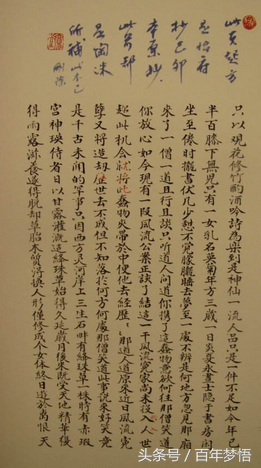 此頁
是怡府
抄己卯
本原抄
只以觀花修竹酌酒吟詩為樂到是神仙一流人品只是一件不足如今年已
半百膝下無兒只有一女乳名英菊年方三歲一日炎夏永晝士隱于書房閒
坐至倦時抛書伏几少憩不覺朦朧睡去夢至一處不辨是何地方忽見那廂
來了一僧一道且行且談只聽道人問道你攜了這蠢物意欲何往那僧笑道
你放心如今現有一段風流公案正該了結這一干風流冤家尚未投入人世
趁此機会就將此蠢物夾帶於中使他去經歷那道人道原來近日風流冤
孽又將造劫歷世去不成但不知落於何方何處那僧笑道此事說來好笑竟
是千古未聞的罕事只因西方灵河岸上三生石畔有絳珠草一株時有赤瑕
宮神瑛侍者日以甘露灌溉這絳珠草始得久延歲月後來既受天地精華復
得雨露滋養遂得脫却草胎木質得換人形僅修成个女体終日遊於離恨天
头条号 / 百年梦悟